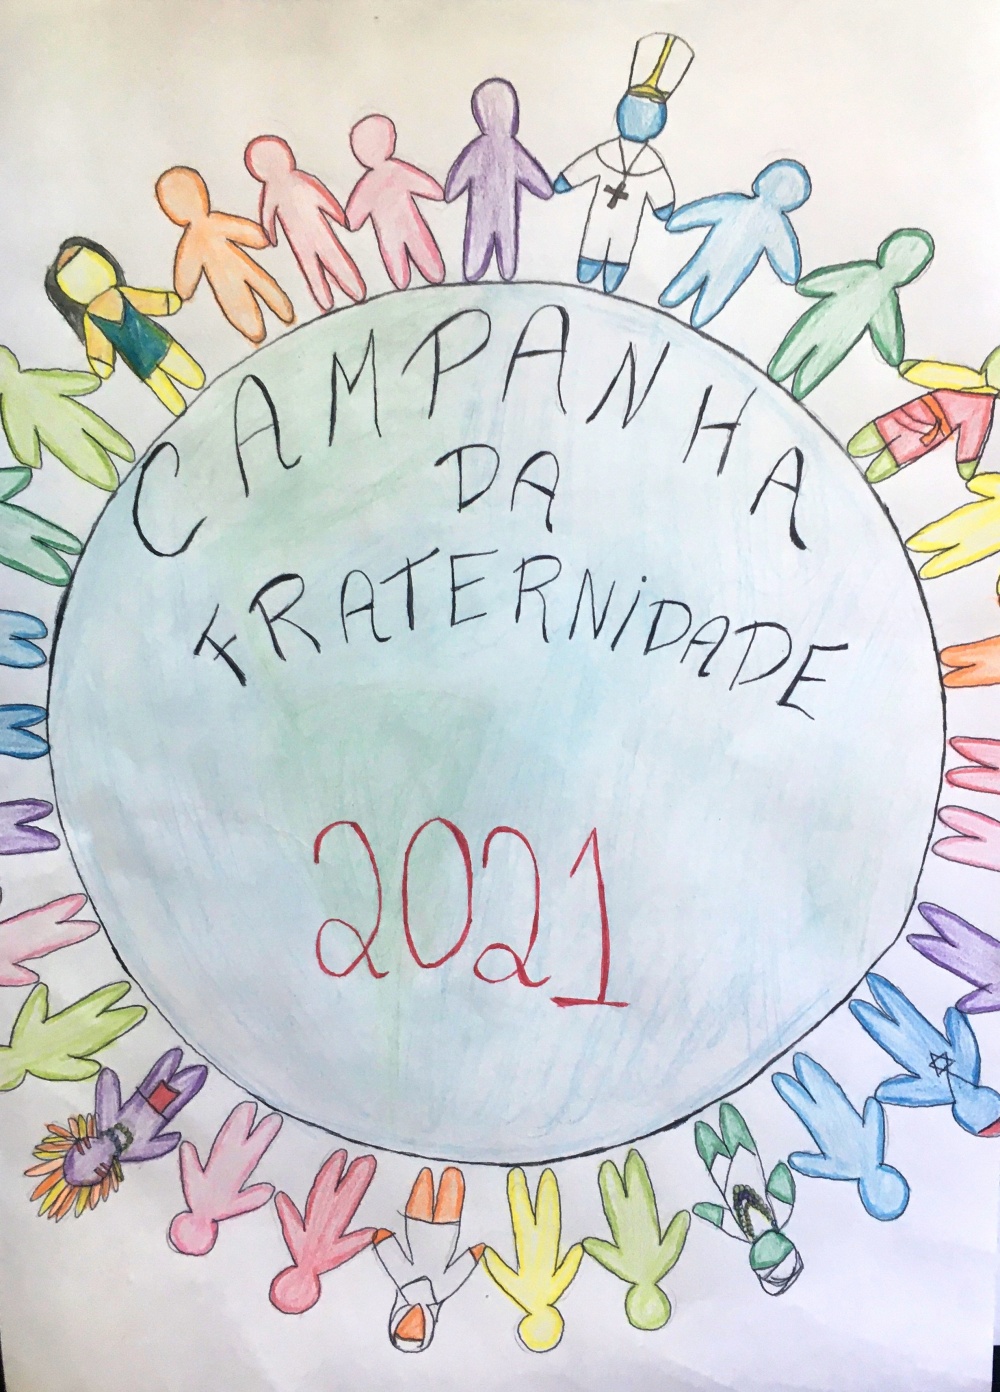 CAMPANHA
DA
FRATERNiDADE
2021